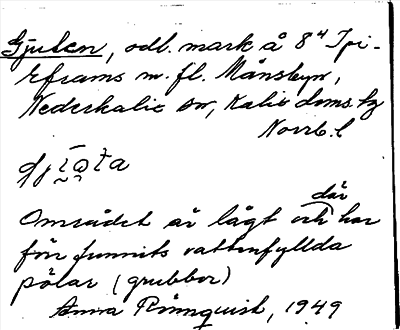 Gjuten, odl. mark å 8⁴ Ipi-
Eframs m. fl. Månsbyn,
Nederkalix sn, Kalix doms. tg
Norrb. l
Området är lågt och där har
förr funnits vattenfyllda
pölar (grubbor)
Anna Rönnquist, 1949